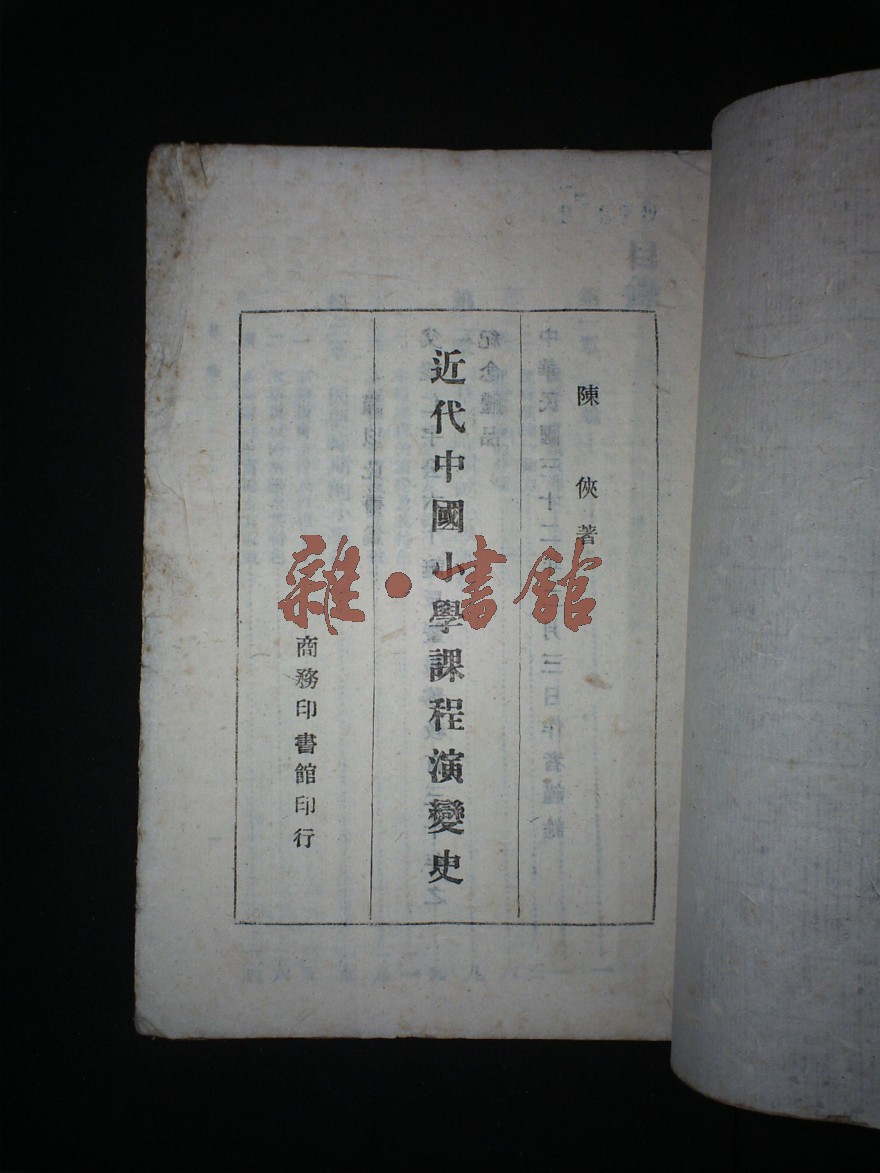 陳俠著
近代中國小學課程演變史
商務印書館印行
雜·書館